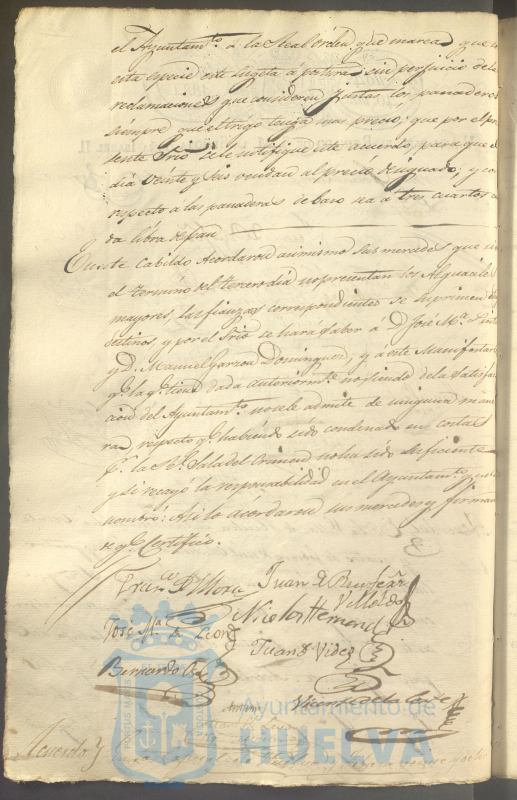 el Ayuntam.to á la Real órden que marca que
esta especie este sugeta á postura sin perjuicio de la
reclamaciones que consideren justas los panaderos
siempre que el trigo tenga mas precio; que por el pre
sente Srio se le notifique este acuerdo para que el
dia Veinte y seis vendan al precio designado; y con
respecto a las panaderas de bazo sea a tres cuartos ca
da libra de pan
En este Cabildo Acordaron asimismo sus mercedes que si en
el termino del tercero dia no presentan los Alguaciles
mayores las fianzas correspondientes se suprimen
destinos y por el Srio se hará saber a D. José M.a Pinto
y D. Manuel Garzon Dominguez; y á este Manifestara
q.e la q.e tiene dada anteriorm.te no siendo de la satisfac
cion del Ayuntam.to no se le admite de ninguna mane
ra respeto q.e habiendo sido condenado en costas
p.r la S.a Sala del Crimen no ha sido suficiente
y si recayó la responsabilidad en el Ayuntam.to q.e
nombró: Asi lo acordaron sus mercedes y firman
de q.e Certifico.
Fran.co de Mora Juan de
Villoldo
José M.a de Leon Nicolas
Juan de Vides
Bernardo
Antonio Vicente de la Corte
Acuerdo
Ayuntamiento de
HUELVA
PORTUS MARIS
CUSTODIA